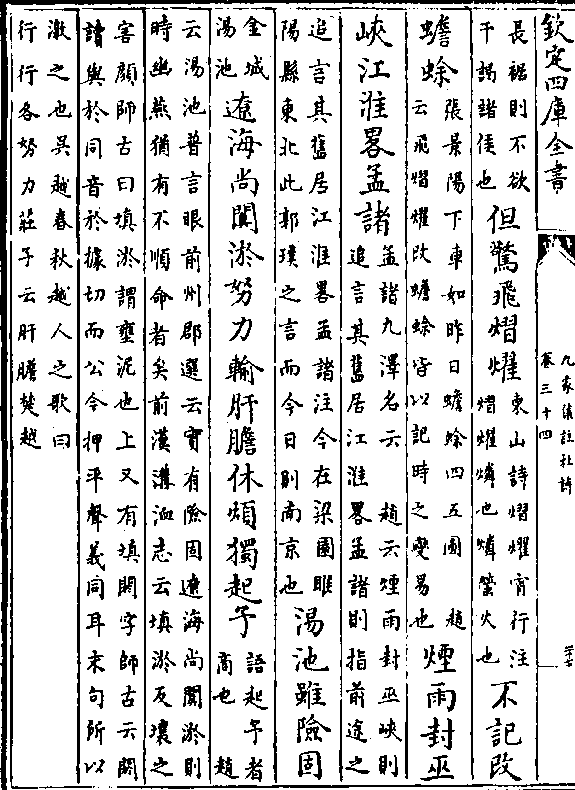 欽定四庫全書
九家集註杜詩
卷三十四
長裾則不欲
干謁諸侯也
但驚飛熠燿
東山詩熠燿宵行注
熠燿燐也燐螢火也
不記改
蟾蜍
張景陽下車如昨日蟾蜍四五圓 趙
云飛熠燿改蟾蜍皆以記時之變易也
煙雨封巫
峽江淮畧孟諸
孟諸九澤名云 趙云煙雨封巫峽則
追言其舊居江淮畧孟諸則指前途之
追言其舊居江淮畧孟諸注今在梁國睢
陽縣東北此郭璞之言而今日則南京也
湯池雖險固
金城
湯池
遼海尚闐淤努力輸肝膽休煩獨起予
語起予者
商也 趙
云湯池普言眼前州郡選云實有險固遼海尚闐淤則
時幽燕猶有不順命者矣前漢溝洫志云填淤反壤之
害顔師古曰填淤謂壅泥也上又有填閼字師古云閼
讀與於同音於據切而公今押平聲義同耳末句所以
激之也吳越春秋越人之歌曰
行行各努力莊子云肝膽楚越